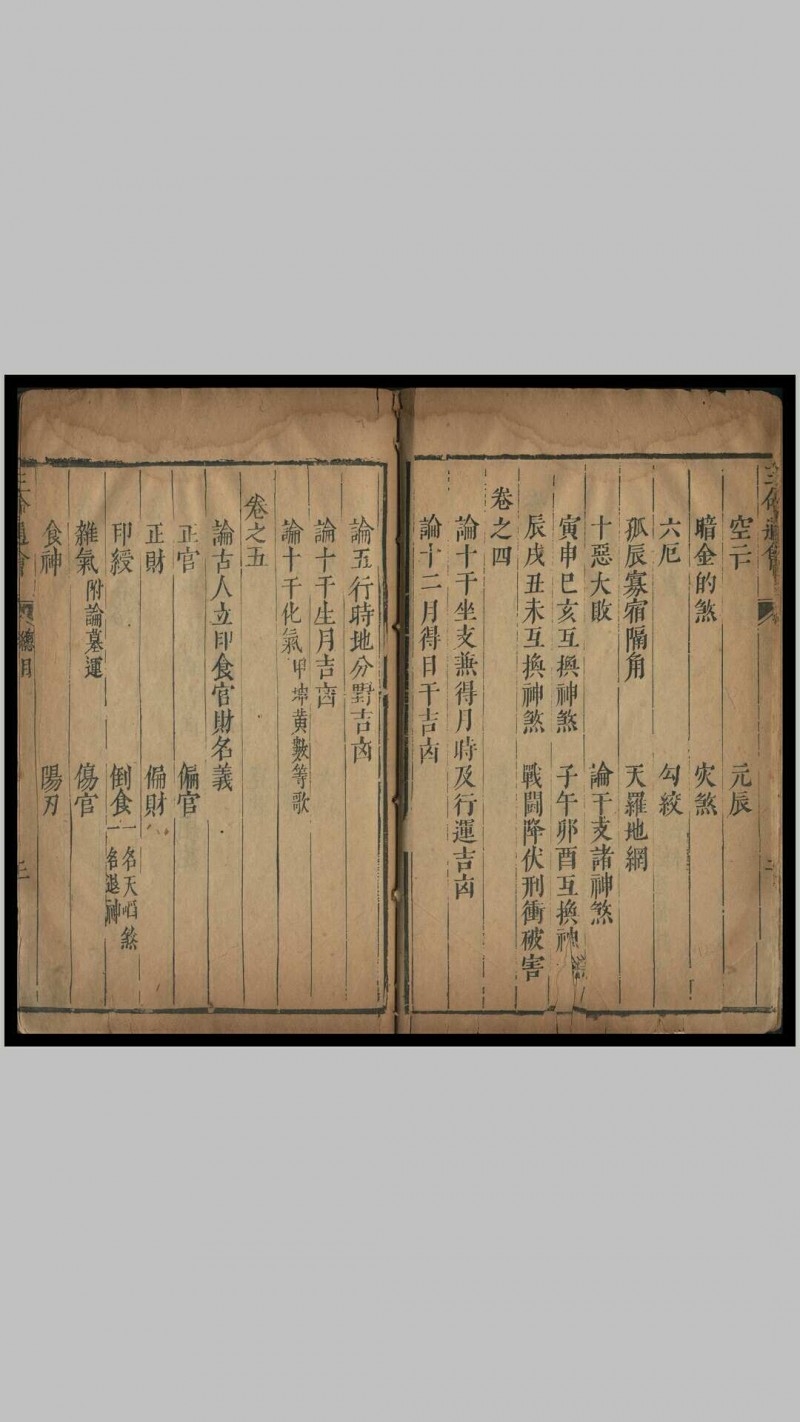 三命通會
空亡 元辰
暗金的煞 灾煞
六厄 勾絞
孤辰寡宿隔角 天羅地網
十惡大敗 論干支諸神煞
寅申巳亥互換神煞 子午卯酉互換神
辰戌丑未互換神煞 戰鬪降伏刑衝破害
卷之四
論十干坐支兼得月時及行運吉㐫
論十二月得日干吉㐫
論五行時地分野吉㐫
論十干生月吉㐫
論十干化氣 甲坤黄數等歌
卷之五
論古人立印食官財名義
正官 偏官
正財 偏財
印綬 倒食 一名天㖤煞
一名退神
雜氣 附論墓運 傷官
食神 陽刃
三命通會 總目 二